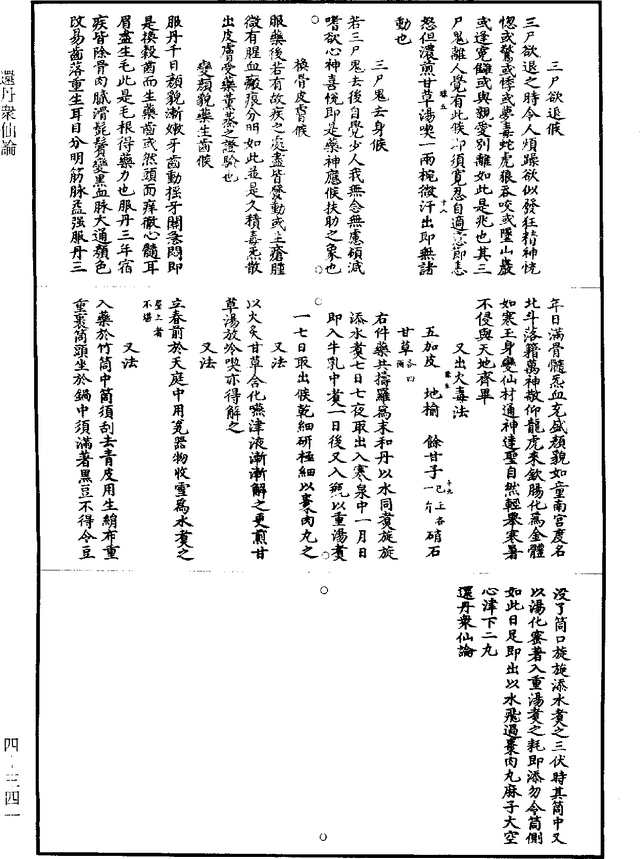 還丹衆仙論
四·三四一
三尸欲退候
三尸欲退之時令人煩躁欲似發狂精神恍
惚或驚或悸或夢毒蛇虎狼吞咬或墜山巖
或逢寃讎或與親愛別離如此是兆也其三
尸鬼離人覺有此候即須寬忍自適忘卽恚
怨但濃煎甘草湯喫一兩椀微汗出即無諸
動也
三尸鬼去身候
若三尸鬼去後自覺少人我無念無慮頓減
嗜欲心神喜悦即是藥神應候扶助之象也
換骨皮膚候
服藥後若有故疾之處盡皆發動或生瘡腫
微有腥血瘢痕分明如此並是久積毒炁散
出皮膚受藥薰蒸之證驗也
變顏貌藥生齒候
服丹千日顏貌漸嫩牙齒動搖牙關急悶即
是換穀齒而生藥齒或然頭而痒徹心髓耳
眉盡生毛此是毛根得藥力也服丹三年宿
疾皆除骨肉膩滑髭鬢變黑血脉大通顏色
改易齒落重生耳目分明筋脉益强服丹三
年日滿骨髓炁血充盛顏貌如童南宮度名
北斗落籍萬神敬仰龍虎來欽腸化爲金體
如寒玉身變仙材通神達聖自然輕舉寒暑
不侵與天地齊畢
又出火毒法
五加皮 地榆 餘甘子已上各六斤 硝石
甘草各四兩
右件藥共擣羅爲末和丹以水同煑旋旋
添水煑七日七夜取出入寒泉中一月日
即入牛乳中煑一日後又入甁以重湯煑
一七日取出候乾細研極細以棗肉丸之
又法
以火炙甘草合化嚥津液漸漸解之更煎甘
草湯放冷喫亦得解之
又法
立春前於天庭中用瓷器物收雪爲水煑之
屋上者不堪
又法
入藥於竹筒中筒須刮去青皮用生絹布重
重裹筒頭坐於鍋中須滿著黑豆不得令豆
没了筒口旋旋添水煑之三伏時其筒中又
以湯化蜜著入重湯煑之耗即添勿令筒側
如此日足即出以水飛過棗肉丸麻子大空
心津下二丸
還丹衆仙論